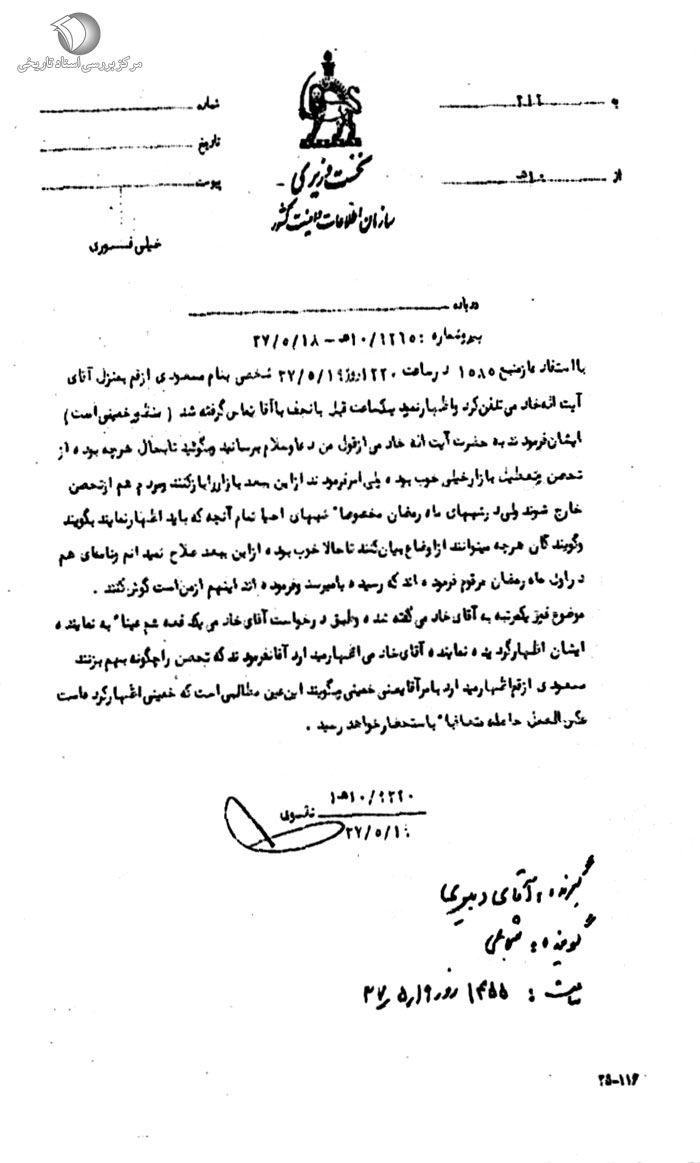 مرکز بررسی اسناد تاریخی
به ۳۱۲
شماره
تاریخ
از ۱۰ه
پیوست
نخست وزیری
سازمان اطلاعات و امنیت کشور
خیلی فوری
درباره
پیرو شماره : ۱۰/۹۲۶۵ه – ۳۷/۵/۱۸
با استفاده از منبع ۱۵۸۵ در ساعت ۱۲۲۰ روز ۳۷/۵/۱۹ شخصی بنام مسعودی از قم بمنزل آقای
آیت اله خادمی تلفن کرد و اظهار نمود یکساعت قبل با نجف با آقا تماس گرفته شد ( منظور خمینی است )
ایشان فرمودند به حضرت آیت اله خادمی از قول من دعا و سلام برسانید و بگوئید تابحال هرچه بوده از
تحصن و تعطیل بازار خیلی خوب بوده ولی امر فرمودند از این ببعد بازار را باز کنند و مردم هم از تحصن
خارج شوند ولی در شبهای ماه رمضان مخصوصا" شبهای احیا تمام آنچه که باید اظهار نمایند بگویند
وگویندگان هرچه میتوانند از اوضاع بیان کنند تا حالا خوب بوده از این ببعد صلاح نمیدانم و نامه‌ای هم
در اول ماه رمضان مرقوم فرموده اند که رسیده یا میرسد و فرموده اند اینهم از من است گوش کنند .
موضوع فیز یکمرتبه به آقای خادمی گفته شده و طبق درخواست آقای خادمی یک دفعه هم عینا" به نماینده
ایشان اظهار گردیده نماینده آقای خادمی اظهار میدارد آقا نفرمودند که تحصن را چگونه بهم بزنند
مسعودی از قم اظهار میدارد بامر آقا یعنی خمینی و میگویند این عین مطالبی است که خمینی اظهار کرده است
عکس العمل حاصله متعاقبا" باستحضار خواهد رسید .
۱۰/۹۲۹۰ه۱
تقوی
۳۷/۵/۱
گیرنده : آقای دبیری
گوینده :
ساعت : ۱۴۵۵ روز ۳۷/۵/۱۹
۲۵-۱۱۶